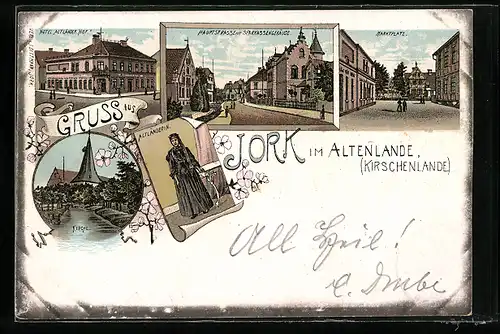 HOTEL „ALTLÄNDER HOF.“
HAUPTSTRASSE MIT SPARKASSENGEBÄUDE.
MARKTPLATZ.
GRUSS AUS
ALTLÄNDERIN.
JORK IM ALTENLANDE,
(KIRSCHENLANDE)
KIRCHE.
All Heil!